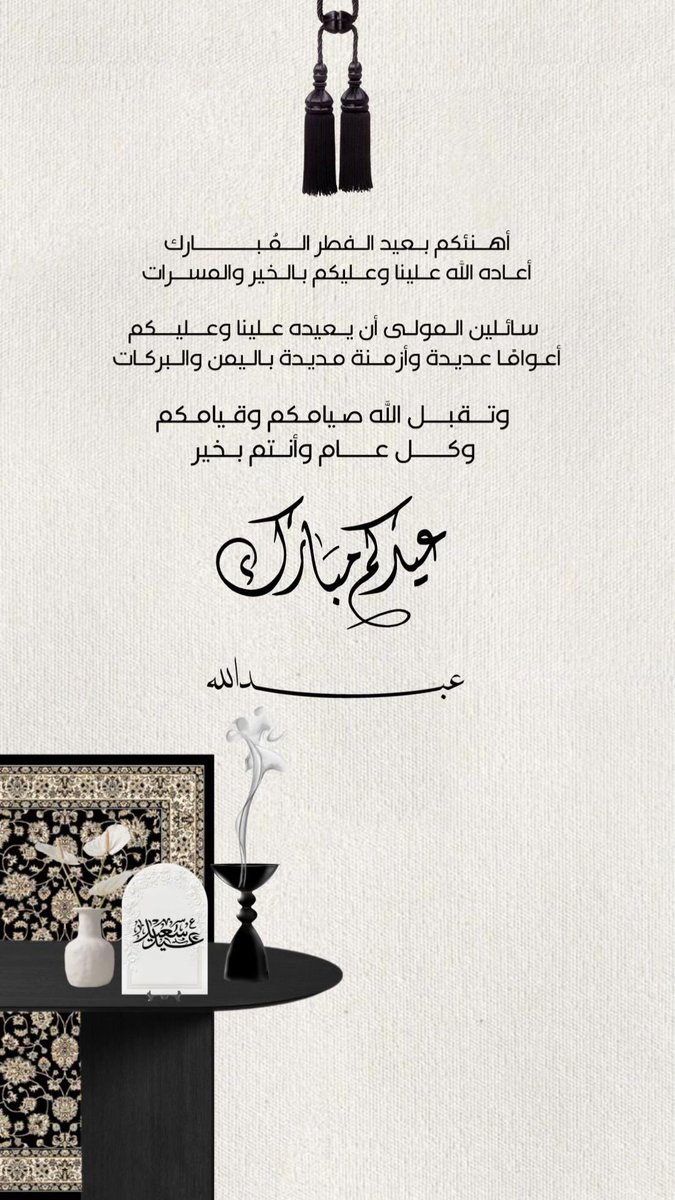 أهنئكم بعيد الفطر المُبارك
أعاده الله علينا وعليكم بالخير والمسرات
سائلين المولى أن يعيده علينا وعليكم
أعوامًا عديدة وأزمنة مديدة باليمن والبركات
وتقبل الله صيامكم وقيامكم
وكل عام وأنتم بخير
عيدكم مبارك
عبدالله
عيد سعيد